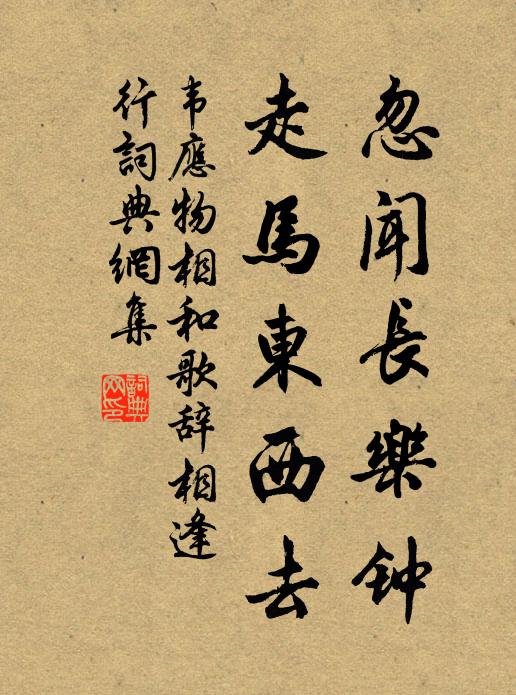 忽闻長樂钟
走馬東西去
韦應物相和歌辞相逢
行詞典網集
詞典
网印